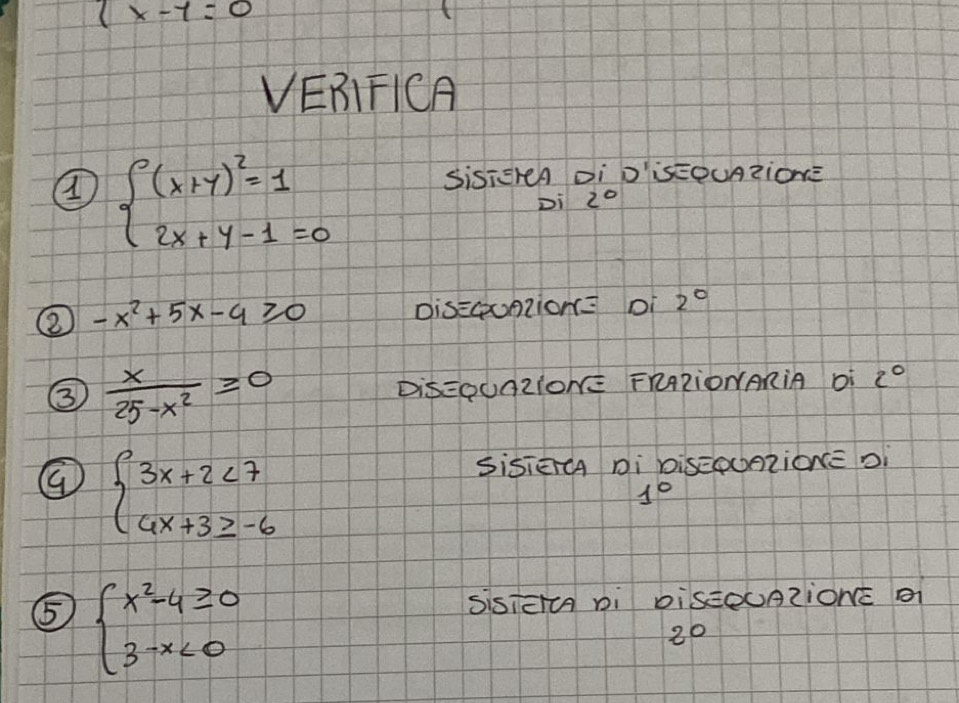 x-y=0
VERIFICA
① { (x+y)² = 1 SISTEMA DI D'ISEQUAZIONE
DI 2°
2x+y-1=0
② -x²+5x-4≥0 DISEQUAZIONE DI 2°
③ x/(25-x²) ≥0 DISEQUAZIONE FRAZIONARIA DI 2°
④ { 3x+2<7 SISTEMA DI DISEQUAZIONE DI
1°
4x+3≥-6
⑤ { x²-4≥0 SISTEMA DI DISEQUAZIONE DI
2°
3-x<0